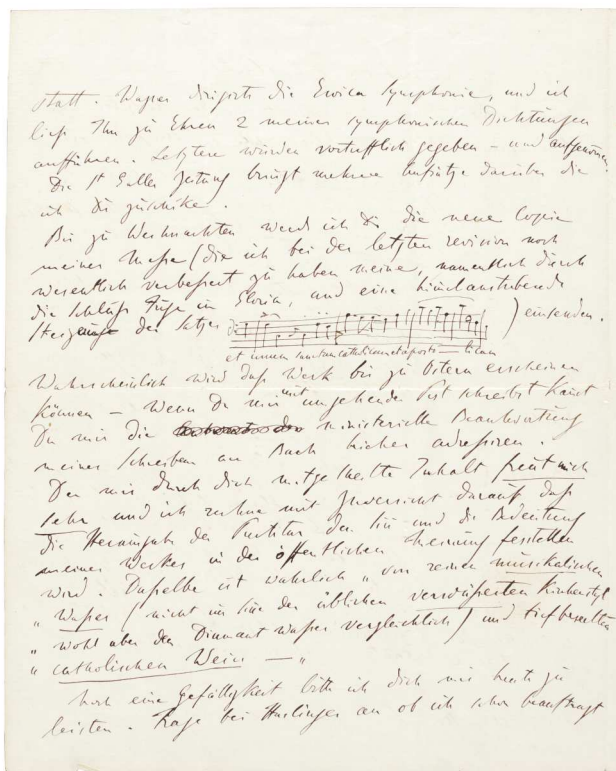 statt. Wagner dirigirte die Eroica Symphonie, und ich
liess Ihm zu Ehren 2 meiner symphonischen Dichtungen
aufführen. Letztere wurden vortrefflich gegeben – und aufgenommen.
Die St Galler Zeitung bringt mehre Aufsätze darüber die
ich Dir zuschike.
Bis zu Weihnachten werde ich Dir die neue Copie
meiner Messe (die ich bei der letzten revision noch
wesentlich verbessert zu haben meine, namentlich durch
die Schluss Fuge im Gloria, und eine
Steigerung des Satzes ) einsenden.
et unam sanctam catholicam et aposto – licam
Wahrscheinlich wird dass Werk bis zu Ostern erscheinen
können – Wenn Du mir mit umgehender Post schreibst kanst
Du mir die ministerielle Beantwortung
meines Schreiben an Bach hieher adressiren.
Der mir durch dich mitgetheilte Inhalt freut mich
sehr und ich rechne mit Zuversicht darauf dass
die Herausgabe der Partitur den Sin und die Bedeutung
meines Werkes in der öffentlichen Meinung feststellen
wird. Dasselbe ist wahrlich „von reinen musikalischen
„Wasser (nicht im Sine des üblichen verwässerten Kirchenstyl
„wohl aber den Diamant Wasser vergleichlich) und tief beseelten
„catholischen Wein — "
Noch eine Gefälligkeit bitte ich dich mir heute zu
leisten. Frage bei Haslinger an ob ich schon beauftragt